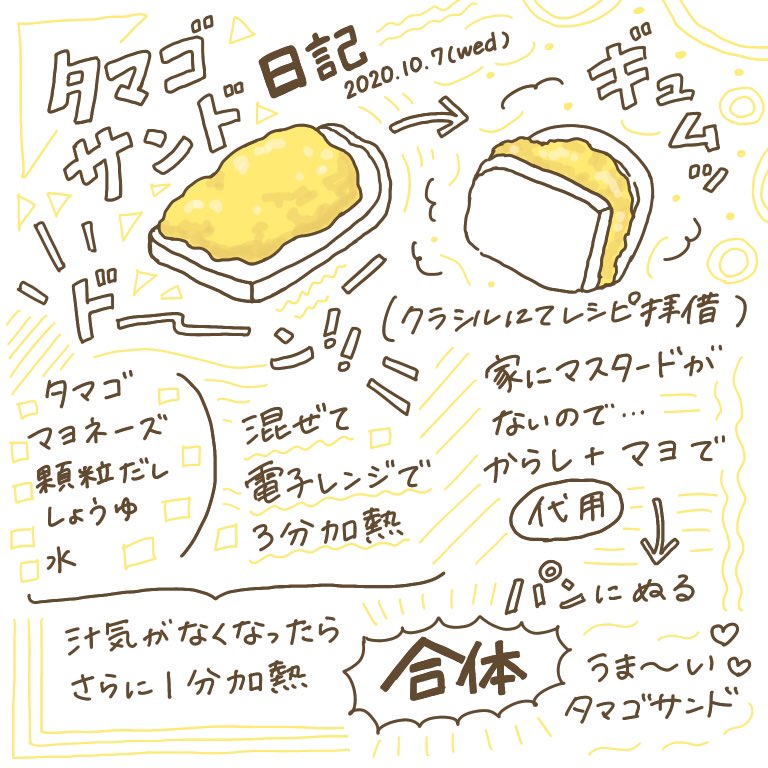 タマゴ
サンド
日記
2020.10.7(wed)
ギュムッ
ドーン!!
(クラシルにてレシピ拝借)
タマゴ
マヨネーズ
顆粒だし
しょうゆ
水
混ぜて
電子レンジで
3分加熱
汁気がなくなったら
さらに1分加熱
家にマスタードが
ないので…
からし+マヨで
代用
パンにぬる
合体
うま〜い♡♡
タマゴサンド